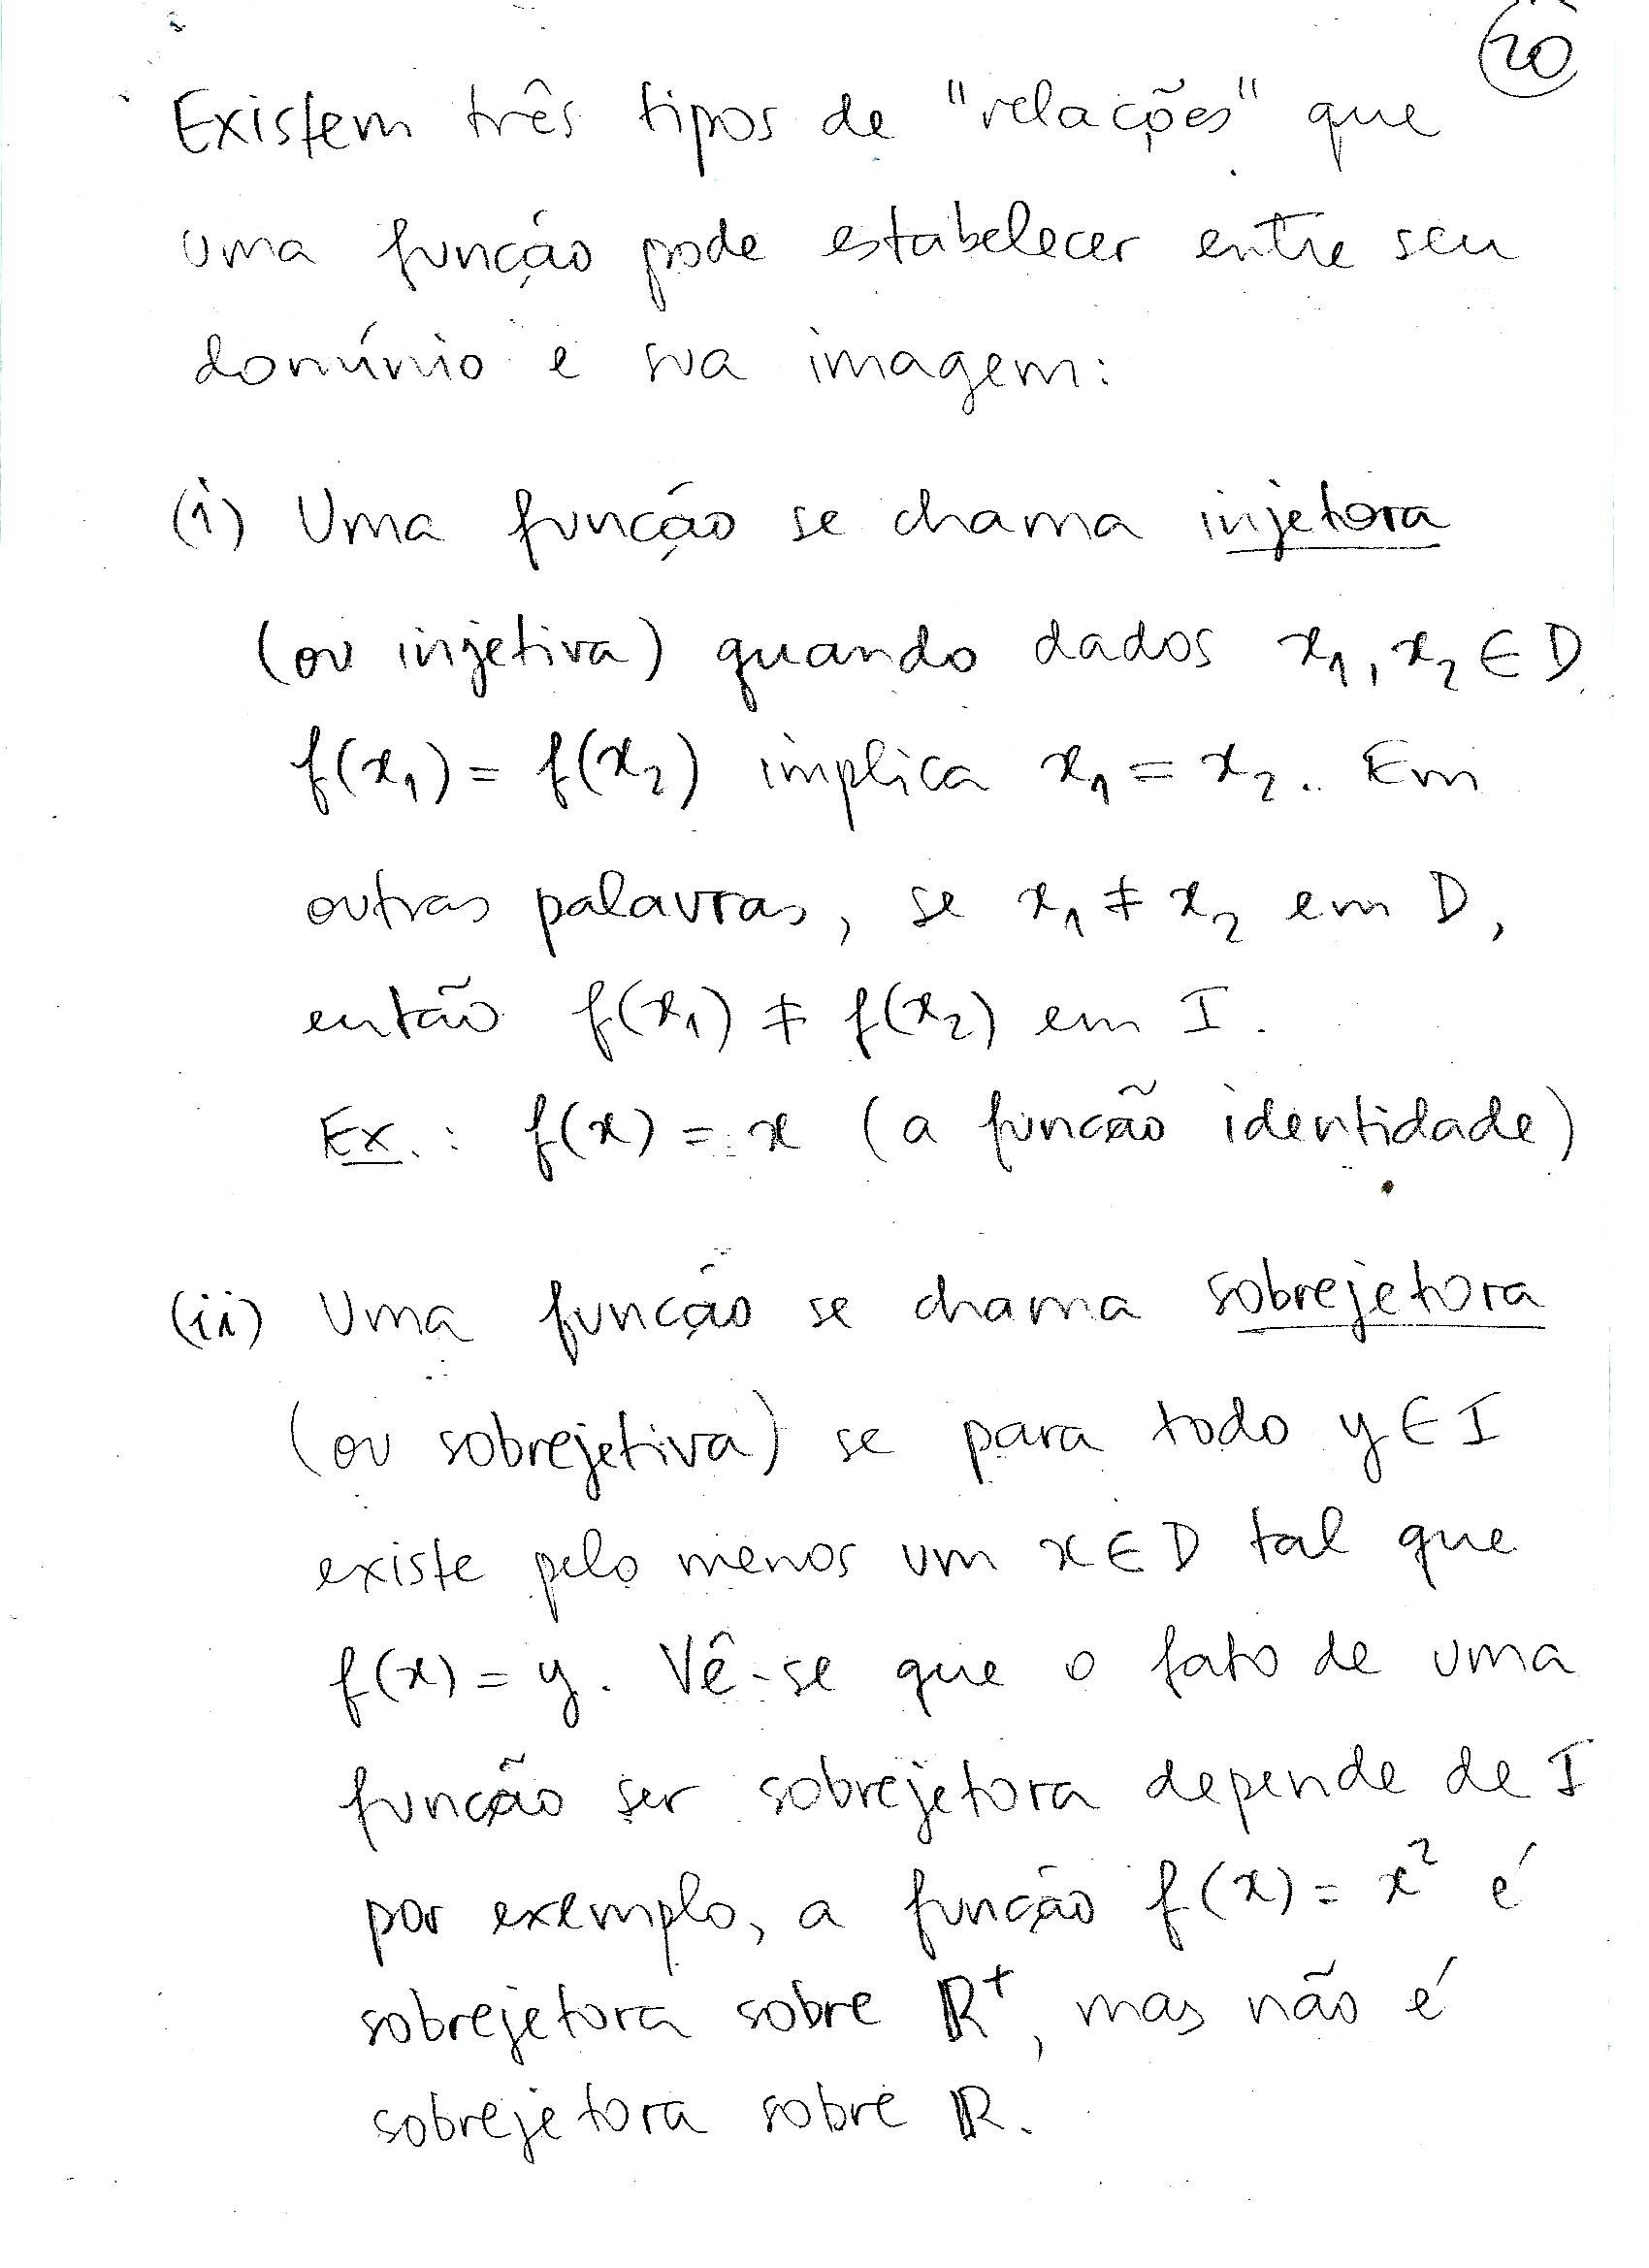 20
Existem três tipos de "relações" que
uma função pode estabelecer entre seu
domínio e sua imagem:
(i) Uma função se chama injetora
(ou injetiva) quando dados x₁, x₂ ∈ D
f(x₁) = f(x₂) implica x₁ = x₂. Em
outras palavras, se x₁ ≠ x₂ em D,
então f(x₁) ≠ f(x₂) em I.
Ex.: f(x) = x (a função identidade)
(ii) Uma função se chama sobrejetora
(ou sobrejetiva) se para todo y ∈ I
existe pelo menos um x ∈ D tal que
f(x) = y. Vê-se que o fato de uma
função ser sobrejetora depende de I
por exemplo, a função f(x) = x² é
sobrejetora sobre ℝ⁺, mas não é
sobrejetora sobre ℝ.